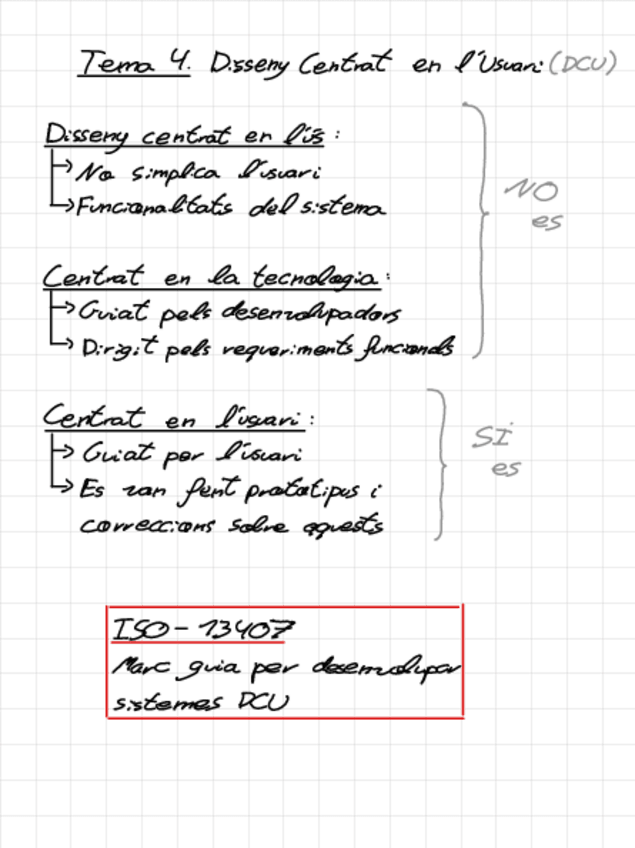 Tema 4. Disseny Centrat en l'Usuari (DCU)
Disseny centrat en l'ús:
No simplica l'usuari
Funcionalitats del sistema
NO
es
Centrat en la tecnologia:
Guiat pels desenvolupadors
Dirigit pels requeriments funcionals
Centrat en l'usuari:
Guiat per l'usuari
Es van fent prototipus i
correccions sobre aquests
SI
es
ISO-13407
Marc guia per desenvolupar
sistemes DCU